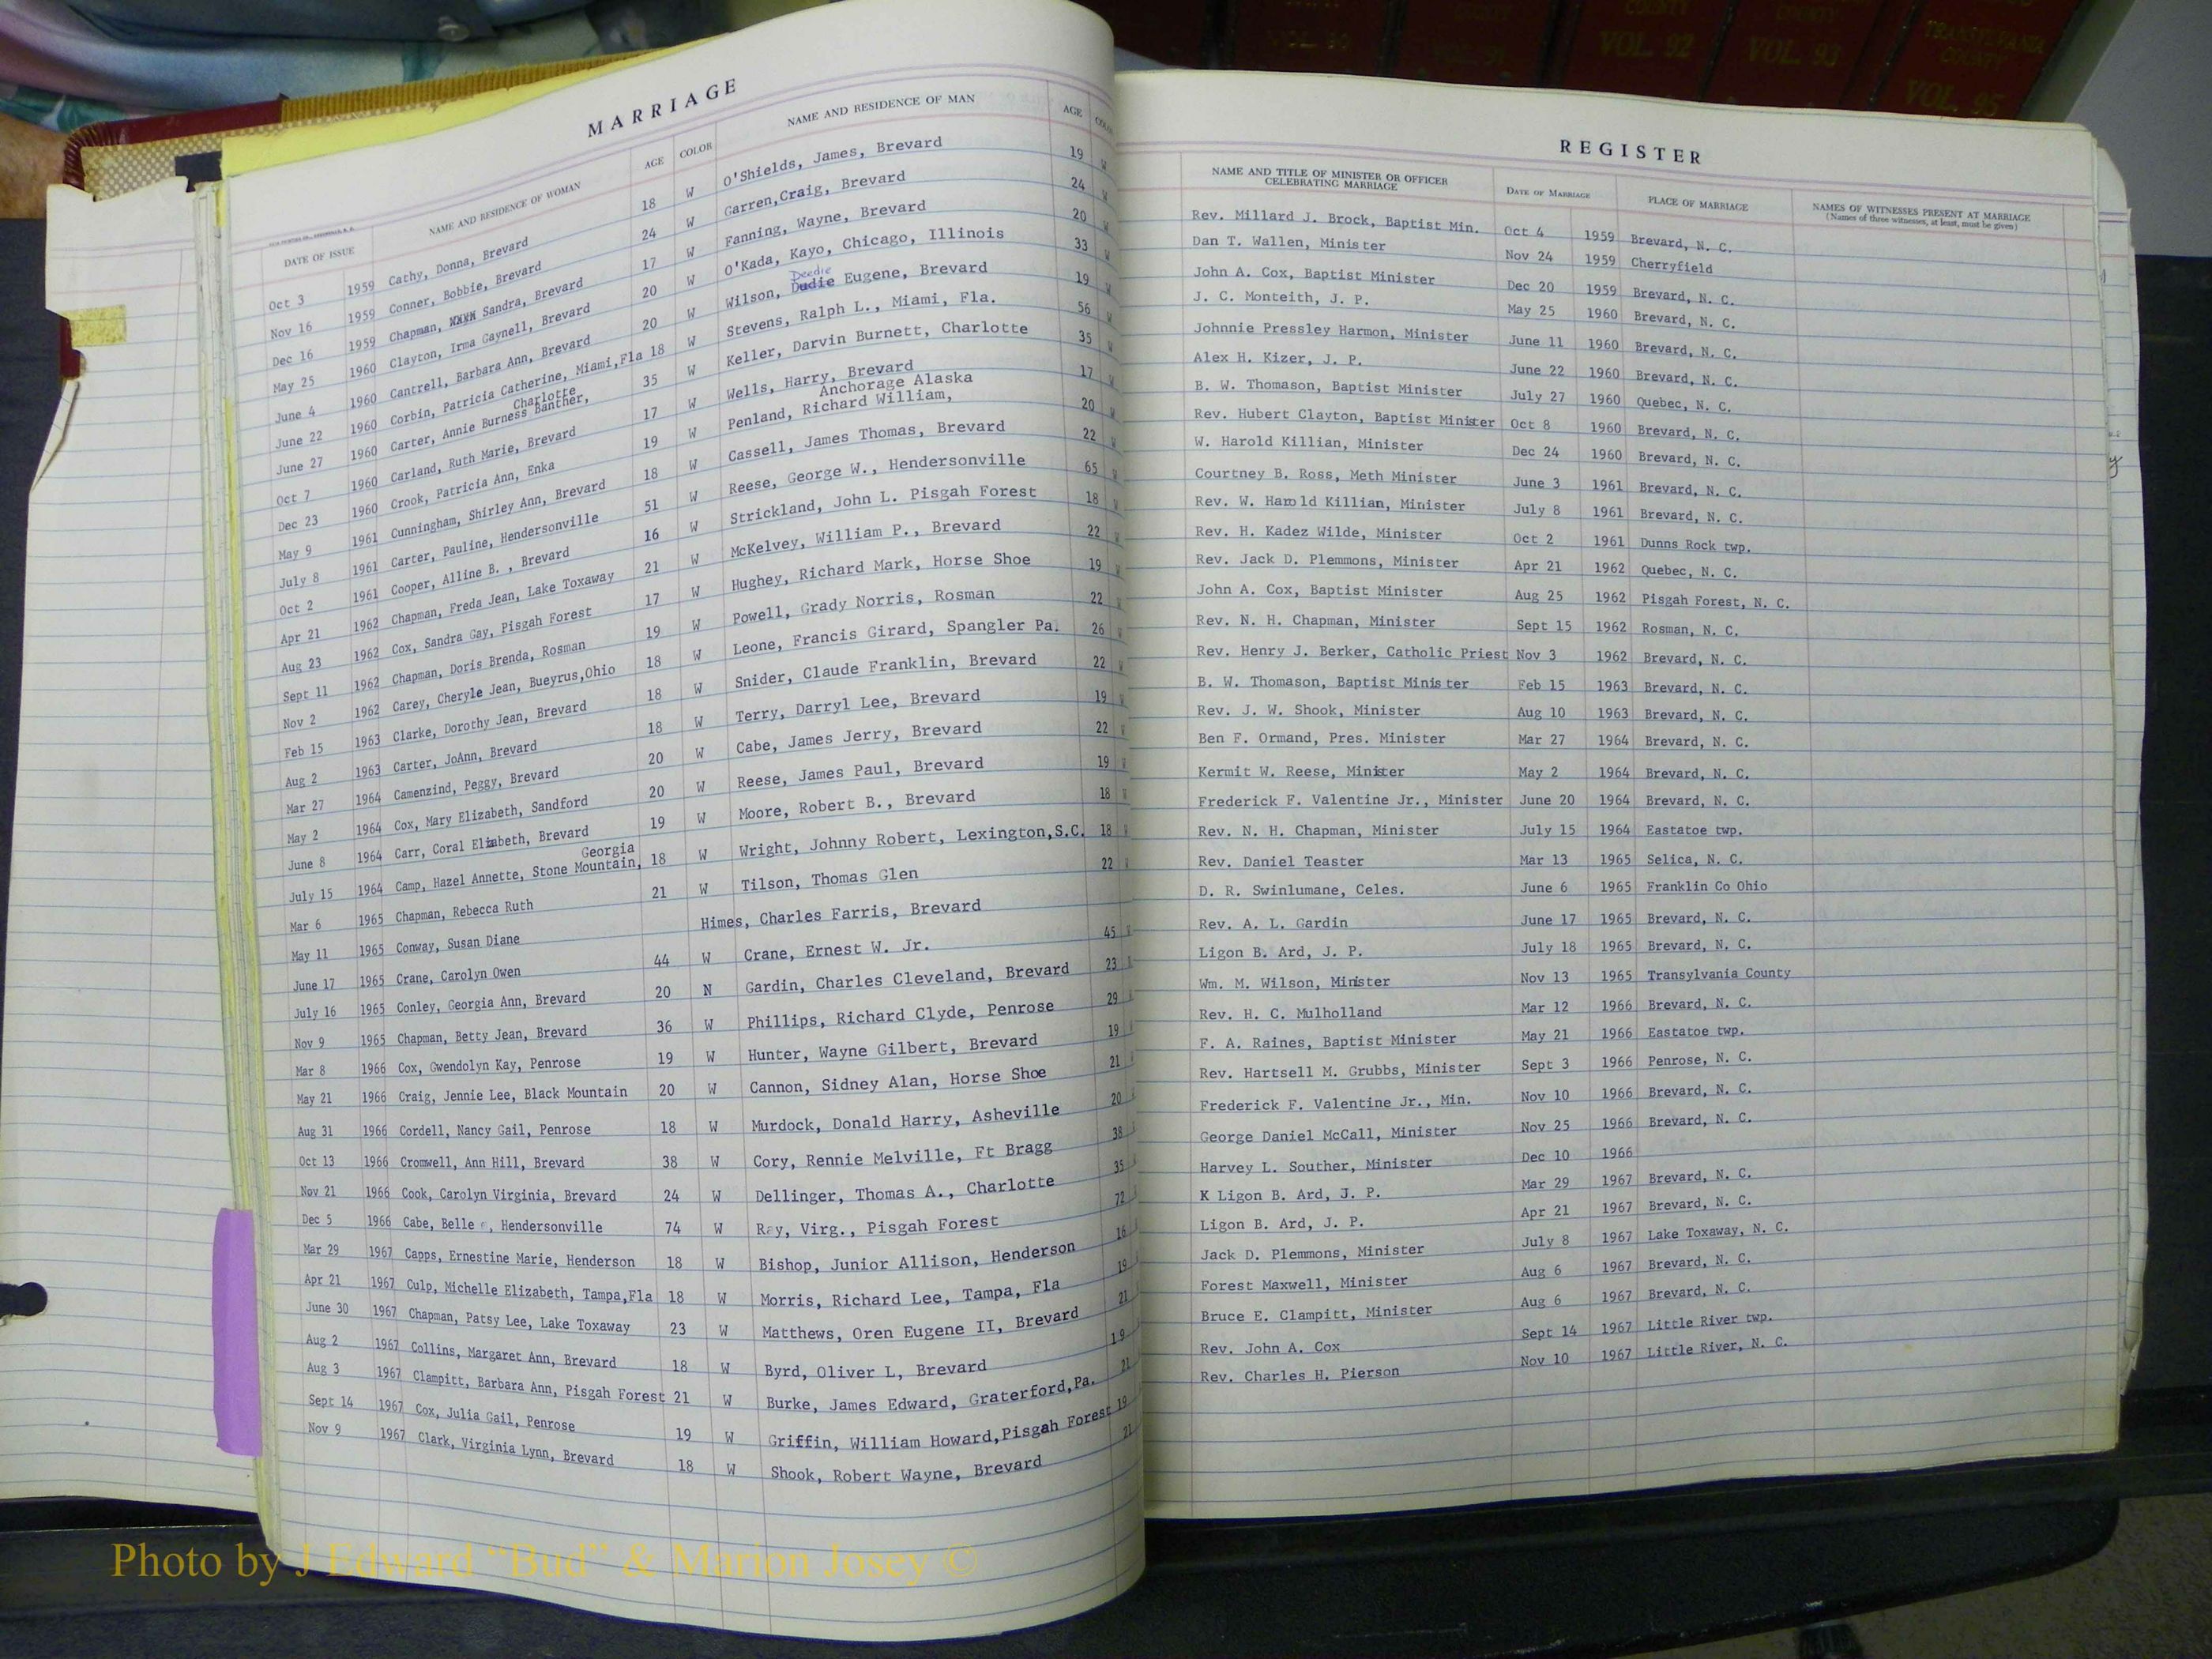 COUNTY
COUNTY
TRANSYLVANIA
COUNTY
VOL. 92
VOL. 93
VOL. 95
MARRIAGE
DATE OF ISSUE NAME AND RESIDENCE OF WOMAN AGE COLOR NAME AND RESIDENCE OF MAN AGE
Oct 3 1959 Cathy, Donna, Brevard 18 W O'Shields, James, Brevard 19 W
Nov 16 1959 Conner, Bobbie, Brevard 24 W Garren,Craig, Brevard 24 W
Dec 16 1959 Chapman, XXXX Sandra, Brevard 17 W Fanning, Wayne, Brevard 20 W
May 25 1960 Clayton, Irma Gaynell, Brevard 20 W O'Kada, Kayo, Chicago, Illinois 33 W
Deedie
June 4 1960 Cantrell, Barbara Ann, Brevard 20 W Wilson, Dudie Eugene, Brevard 19 W
June 22 1960 Corbin, Patricia Catherine, Miami,Fla 18 W Stevens, Ralph L., Miami, Fla. 56 W
Charlotte
June 27 1960 Carter, Annie Burness Banther, 35 W Keller, Darvin Burnett, Charlotte 35 W
Oct 7 1960 Carland, Ruth Marie, Brevard 17 W Wells, Harry, Brevard 17 W
Anchorage Alaska
Dec 23 1960 Crook, Patricia Ann, Enka 19 W Penland, Richard William, 20 W
May 9 1961 Cunningham, Shirley Ann, Brevard 18 W Cassell, James Thomas, Brevard 22 W
July 8 1961 Carter, Pauline, Hendersonville 51 W Reese, George W., Hendersonville 65 W
Oct 2 1961 Cooper, Alline B. , Brevard 16 W Strickland, John L. Pisgah Forest 18 W
Apr 21 1962 Chapman, Freda Jean, Lake Toxaway 21 W McKelvey, William P., Brevard 22 W
Aug 23 1962 Cox, Sandra Gay, Pisgah Forest 17 W Hughey, Richard Mark, Horse Shoe 19 W
Sept 11 1962 Chapman, Doris Brenda, Rosman 19 W Powell, Grady Norris, Rosman 22 W
Nov 2 1962 Carey, Cheryle Jean, Bueyrus,Ohio 18 W Leone, Francis Girard, Spangler Pa. 26 W
Feb 15 1963 Clarke, Dorothy Jean, Brevard 18 W Snider, Claude Franklin, Brevard 22 W
Aug 2 1963 Carter, JoAnn, Brevard 18 W Terry, Darryl Lee, Brevard 19 W
Mar 27 1964 Camenzind, Peggy, Brevard 20 W Cabe, James Jerry, Brevard 22 W
May 2 1964 Cox, Mary Elizabeth, Sandford 20 W Reese, James Paul, Brevard 19 W
June 8 1964 Carr, Coral Elizabeth, Brevard 19 W Moore, Robert B., Brevard 18 W
Georgia
July 15 1964 Camp, Hazel Annette, Stone Mountain, 18 W Wright, Johnny Robert, Lexington,S.C. 18 W
Mar 6 1965 Chapman, Rebecca Ruth 21 W Tilson, Thomas Glen 22
May 11 1965 Conway, Susan Diane Himes, Charles Farris, Brevard
June 17 1965 Crane, Carolyn Owen 44 W Crane, Ernest W. Jr. 45
July 16 1965 Conley, Georgia Ann, Brevard 20 N Gardin, Charles Cleveland, Brevard 23
Nov 9 1965 Chapman, Betty Jean, Brevard 36 W Phillips, Richard Clyde, Penrose 29
Mar 8 1966 Cox, Gwendolyn Kay, Penrose 19 W Hunter, Wayne Gilbert, Brevard 19
May 21 1966 Craig, Jennie Lee, Black Mountain 20 W Cannon, Sidney Alan, Horse Shoe 21
Aug 31 1966 Cordell, Nancy Gail, Penrose 18 W Murdock, Donald Harry, Asheville 20
Oct 13 1966 Cromwell, Ann Hill, Brevard 38 W Cory, Rennie Melville, Ft Bragg 38
Nov 21 1966 Cook, Carolyn Virginia, Brevard 24 W Dellinger, Thomas A., Charlotte 35
Dec 5 1966 Cabe, Belle , Hendersonville 74 W Ray, Virg., Pisgah Forest 72
Mar 29 1967 Capps, Ernestine Marie, Henderson 18 W Bishop, Junior Allison, Henderson 16
Apr 21 1967 Culp, Michelle Elizabeth, Tampa,Fla 18 W Morris, Richard Lee, Tampa, Fla 19
June 30 1967 Chapman, Patsy Lee, Lake Toxaway 23 W Matthews, Oren Eugene II, Brevard 21
Aug 2 1967 Collins, Margaret Ann, Brevard 18 W Byrd, Oliver L, Brevard 19
Aug 3 1967 Clampitt, Barbara Ann, Pisgah Forest 21 W Burke, James Edward, Graterford,Pa. 21
Sept 14 1967 Cox, Julia Gail, Penrose 19 W Griffin, William Howard,Pisgah Forest 19
Nov 9 1967 Clark, Virginia Lynn, Brevard 18 W Shook, Robert Wayne, Brevard 21
REGISTER
NAME AND TITLE OF MINISTER OR OFFICER CELEBRATING MARRIAGE DATE OF MARRIAGE PLACE OF MARRIAGE NAMES OF WITNESSES PRESENT AT MARRIAGE
(Names of three witnesses, at least, must be given)
Rev. Millard J. Brock, Baptist Min. Oct 4 1959 Brevard, N. C.
Dan T. Wallen, Minister Nov 24 1959 Cherryfield
John A. Cox, Baptist Minister Dec 20 1959 Brevard, N. C.
J. C. Monteith, J. P. May 25 1960 Brevard, N. C.
Johnnie Pressley Harmon, Minister June 11 1960 Brevard, N. C.
Alex H. Kizer, J. P. June 22 1960 Brevard, N. C.
B. W. Thomason, Baptist Minister July 27 1960 Quebec, N. C.
Rev. Hubert Clayton, Baptist Minister Oct 8 1960 Brevard, N. C.
W. Harold Killian, Minister Dec 24 1960 Brevard, N. C.
Courtney B. Ross, Meth Minister June 3 1961 Brevard, N. C.
Rev. W. Harold Killian, Minister July 8 1961 Brevard, N. C.
Rev. H. Kadez Wilde, Minister Oct 2 1961 Dunns Rock twp.
Rev. Jack D. Plemmons, Minister Apr 21 1962 Quebec, N. C.
John A. Cox, Baptist Minister Aug 25 1962 Pisgah Forest, N. C.
Rev. N. H. Chapman, Minister Sept 15 1962 Rosman, N. C.
Rev. Henry J. Berker, Catholic Priest Nov 3 1962 Brevard, N. C.
B. W. Thomason, Baptist Minister Feb 15 1963 Brevard, N. C.
Rev. J. W. Shook, Minister Aug 10 1963 Brevard, N. C.
Ben F. Ormand, Pres. Minister Mar 27 1964 Brevard, N. C.
Kermit W. Reese, Minister May 2 1964 Brevard, N. C.
Frederick F. Valentine Jr., Minister June 20 1964 Brevard, N. C.
Rev. N. H. Chapman, Minister July 15 1964 Eastatoe twp.
Rev. Daniel Teaster Mar 13 1965 Selica, N. C.
D. R. Swinlumane, Celes. June 6 1965 Franklin Co Ohio
Rev. A. L. Gardin June 17 1965 Brevard, N. C.
Ligon B. Ard, J. P. July 18 1965 Brevard, N. C.
Wm. M. Wilson, Minister Nov 13 1965 Transylvania County
Rev. H. C. Mulholland Mar 12 1966 Brevard, N. C.
F. A. Raines, Baptist Minister May 21 1966 Eastatoe twp.
Rev. Hartsell M. Grubbs, Minister Sept 3 1966 Penrose, N. C.
Frederick F. Valentine Jr., Min. Nov 10 1966 Brevard, N. C.
George Daniel McCall, Minister Nov 25 1966 Brevard, N. C.
Harvey L. Souther, Minister Dec 10 1966
K Ligon B. Ard, J. P. Mar 29 1967 Brevard, N. C.
Ligon B. Ard, J. P. Apr 21 1967 Brevard, N. C.
Jack D. Plemmons, Minister July 8 1967 Lake Toxaway, N. C.
Forest Maxwell, Minister Aug 6 1967 Brevard, N. C.
Bruce E. Clampitt, Minister Aug 6 1967 Brevard, N. C.
Rev. John A. Cox Sept 14 1967 Little River twp.
Rev. Charles H. Pierson Nov 10 1967 Little River, N. C.
Photo by J Edward “Bud” & Marion Josey ©